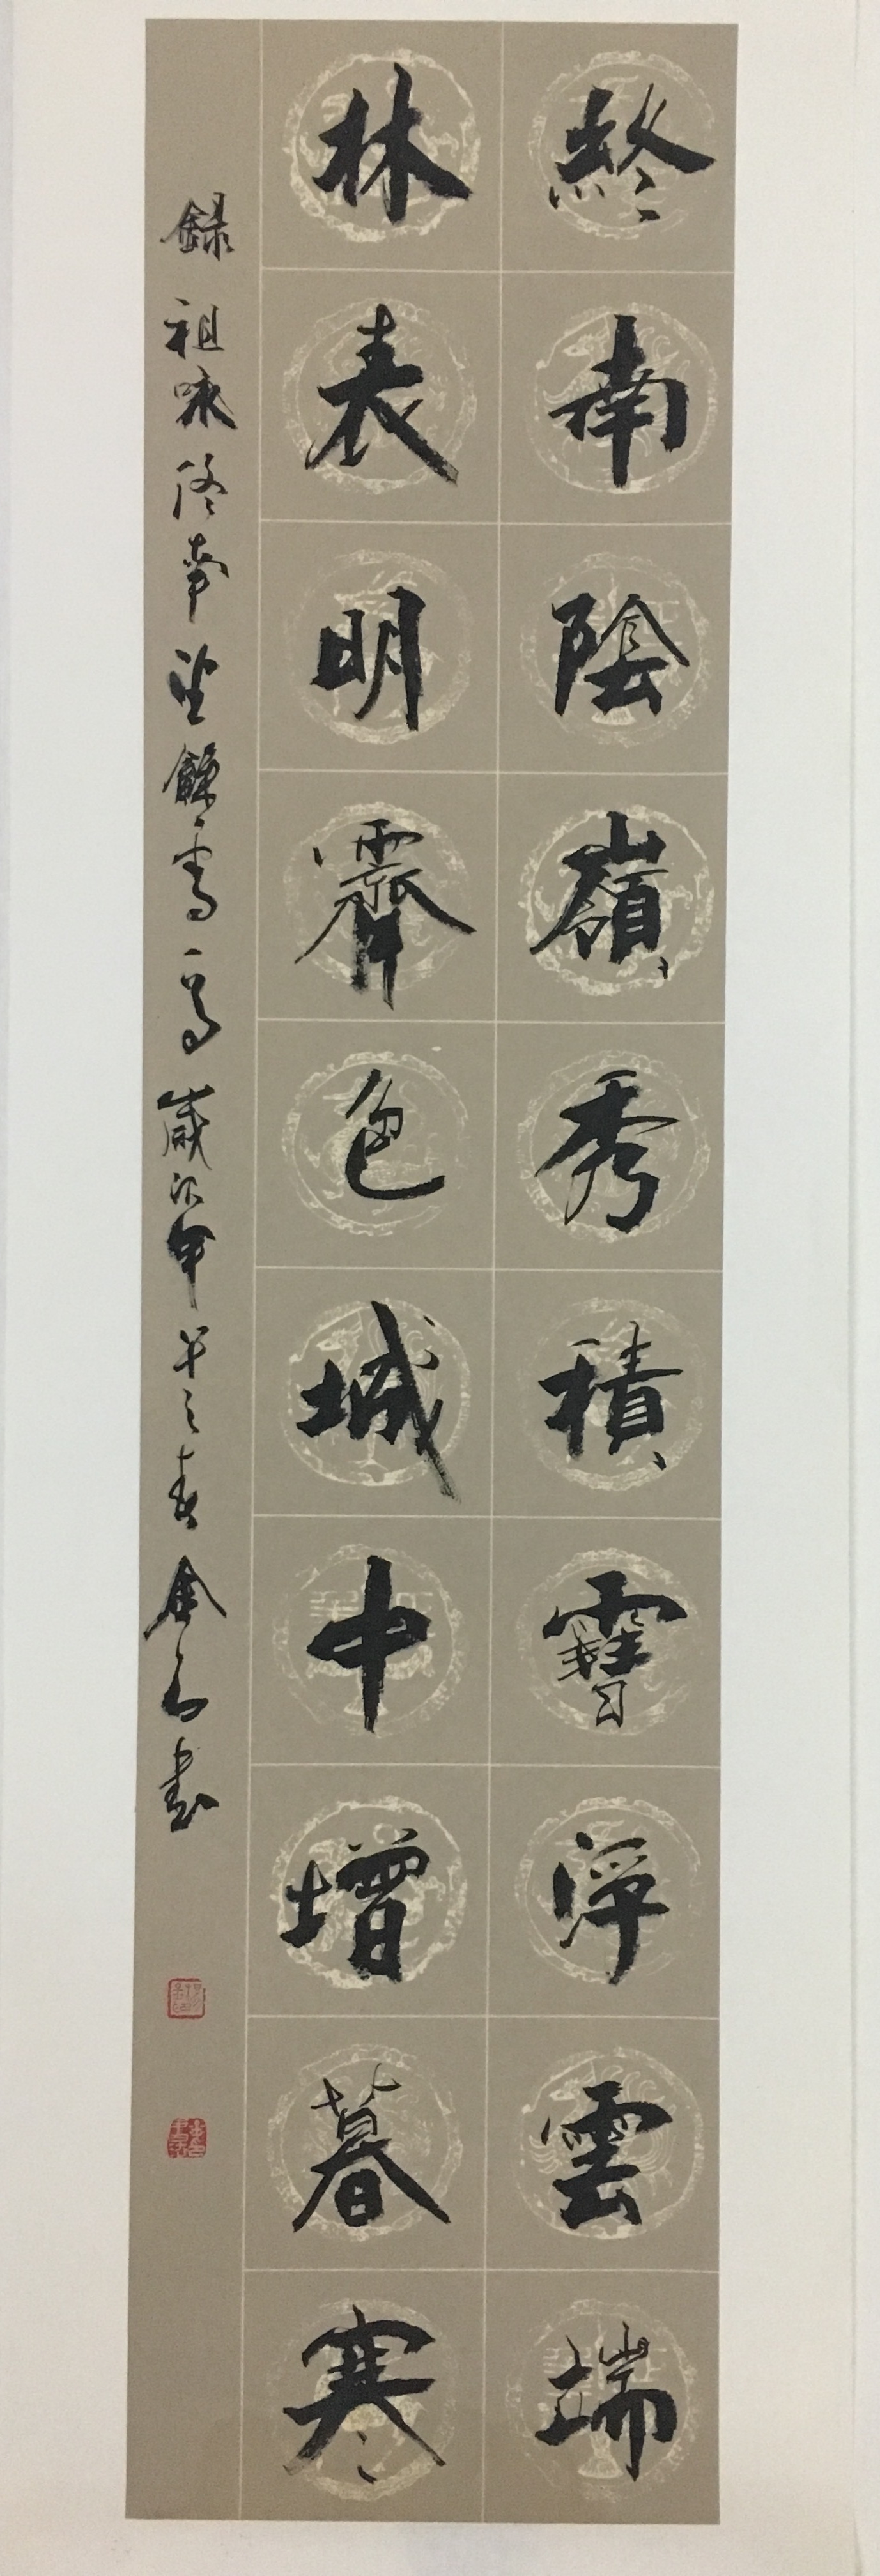 終南陰嶺秀積雪浮雲端
林表明霽色城中增暮寒
錄祖咏終南望餘雪一首歲次甲午之春金石書